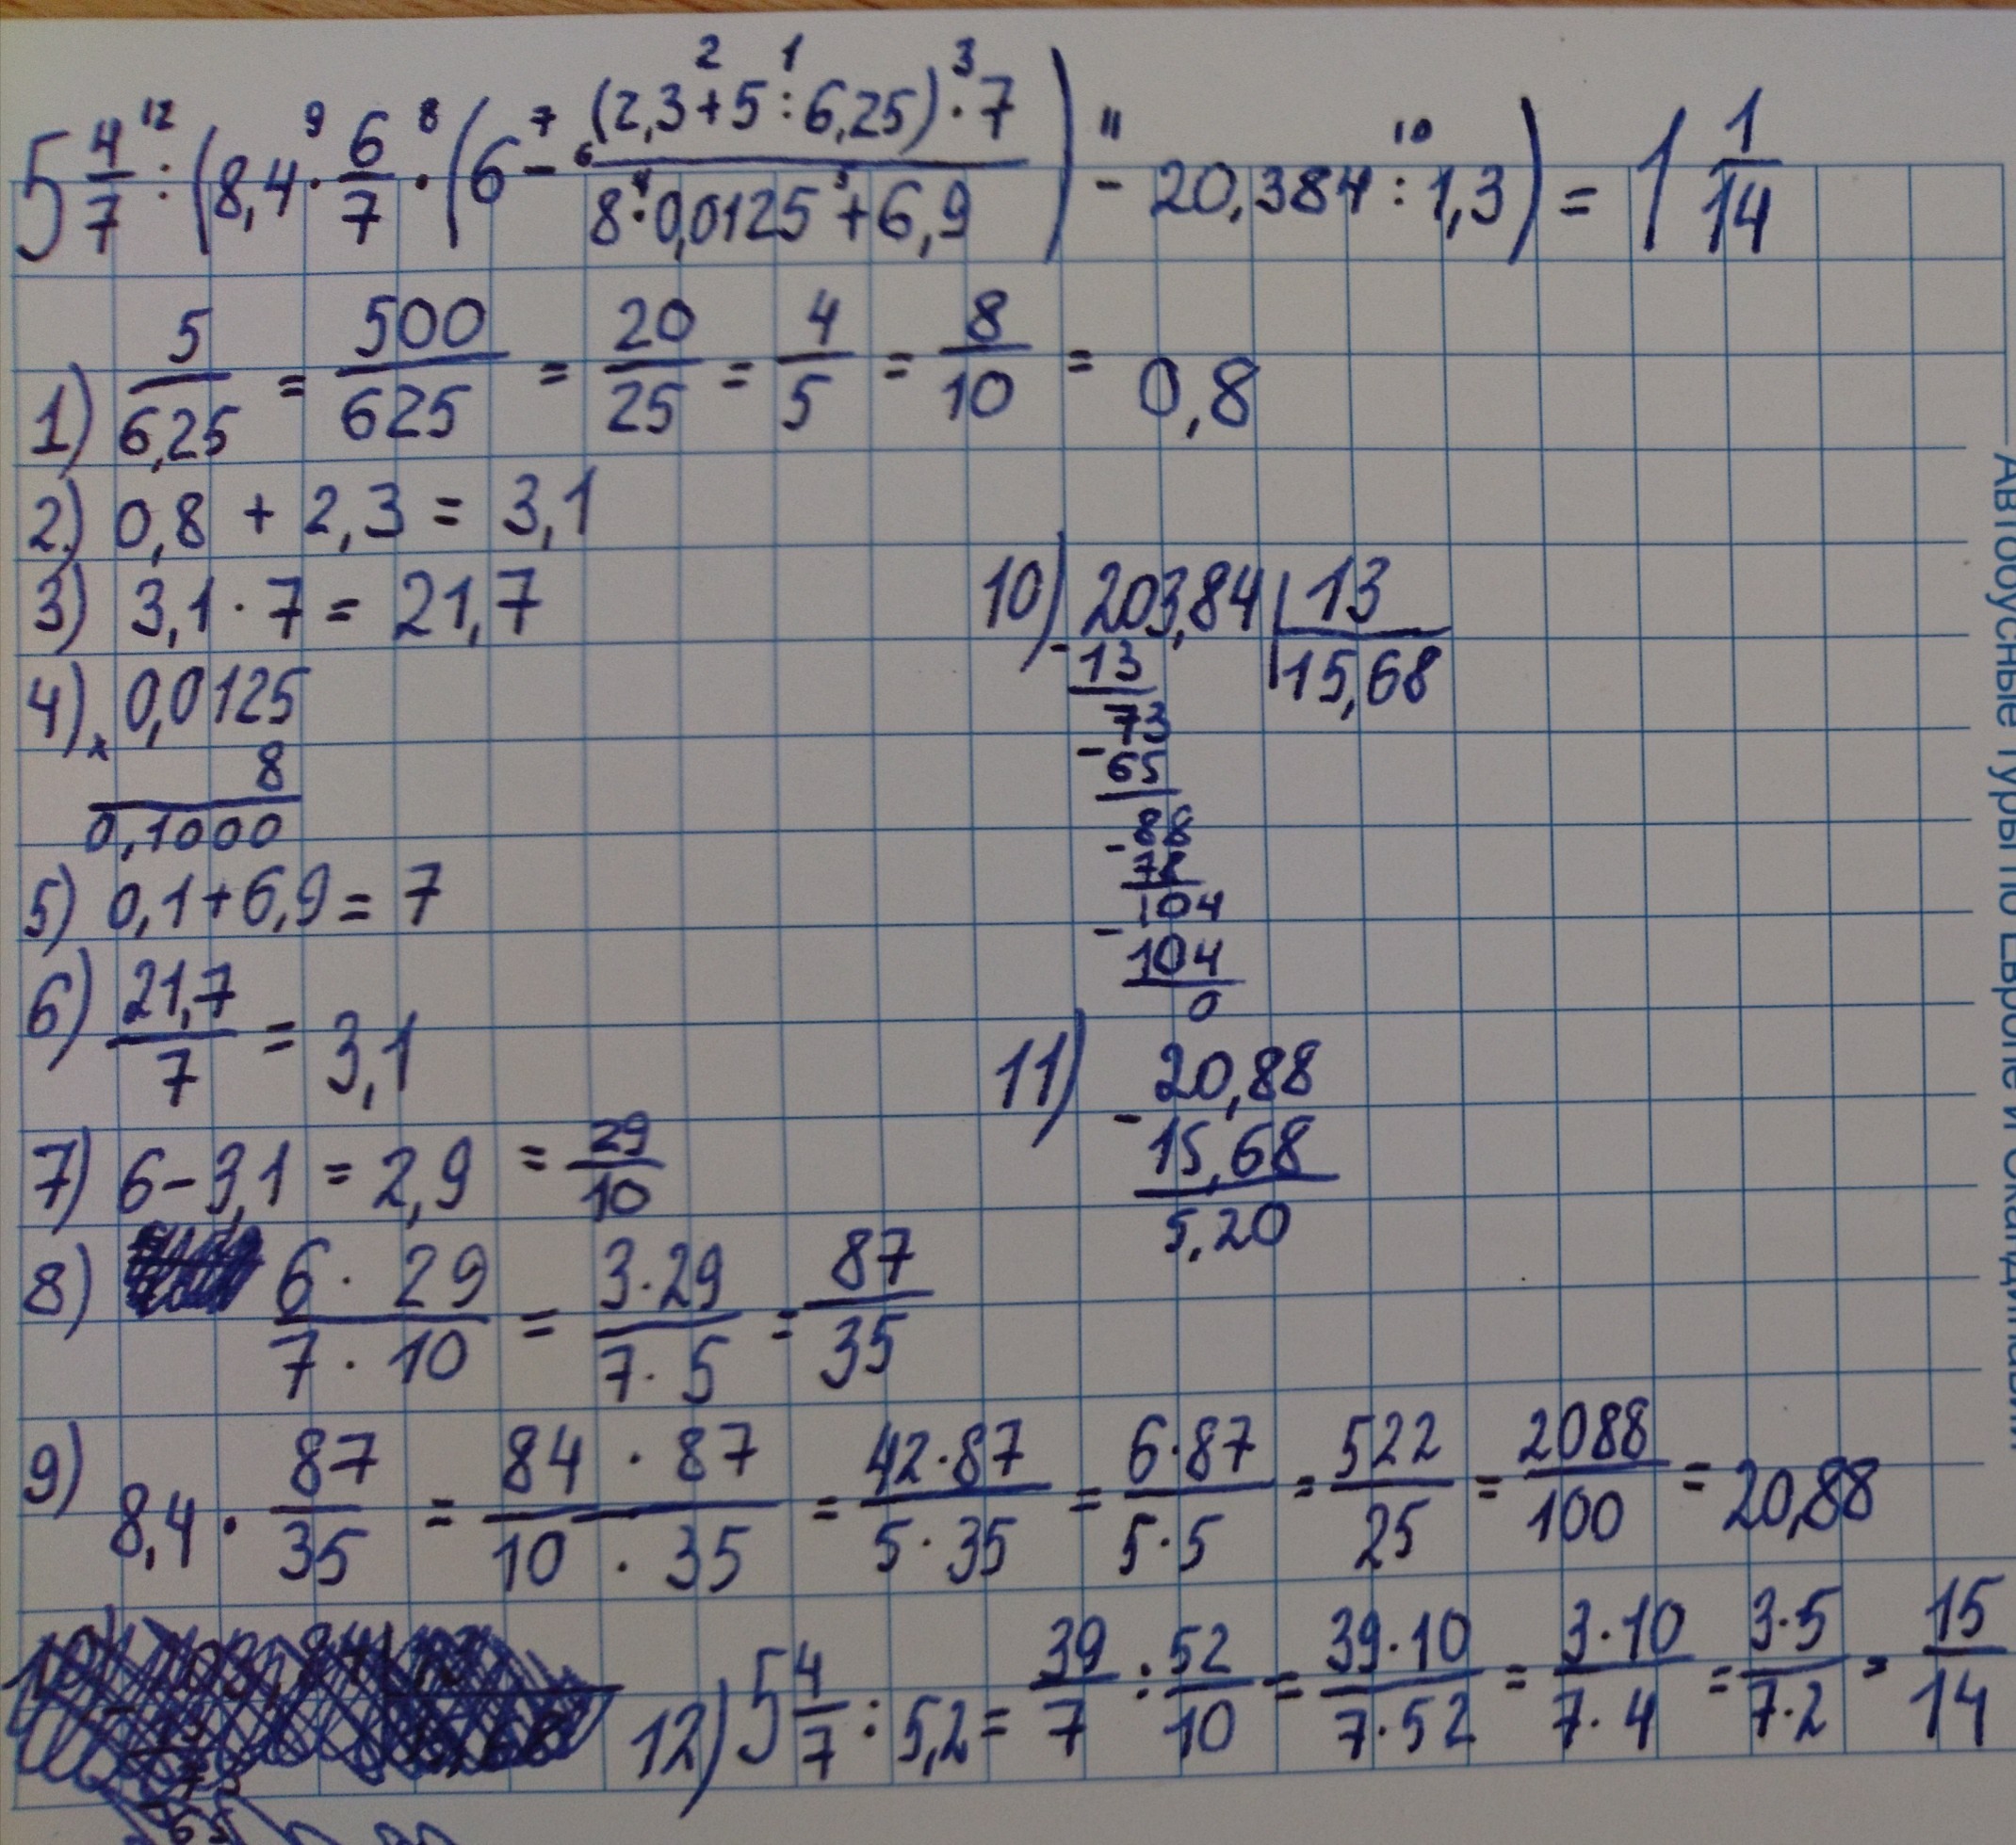 5 4/7 : (8,4 · 6/7 · (6 - (2,3+5:6,25)·7 / 8·0,0125+6,9) - 20,384 : 1,3) = 1 1/14
1) 5/6,25 = 500/625 = 20/25 = 4/5 = 8/10 = 0,8
2) 0,8 + 2,3 = 3,1
3) 3,1 · 7 = 21,7
4) 0,0125
x 8
0,1000
5) 0,1+6,9 = 7
6) 21,7/7 = 3,1
7) 6-3,1 = 2,9 = 29/10
8) 6 · 29 / 7 · 10 = 3·29 / 7·5 = 87/35
9) 8,4 · 87/35 = 84 · 87 / 10 · 35 = 42·87 / 5·35 = 6·87 / 5·5 = 522/25 = 2088/100 = 20,88
10) 203,84 | 13
- 13 | 15,68
73
- 65
88
- 78
104
- 104
0
11) 20,88
- 15,68
5,20
12) 5 4/7 : 5,2 = 39/7 : 52/10 = 39·10 / 7·52 = 3·10 / 7·4 = 3·5 / 7·2 = 15/14
Автобусные туры по Европе и Скандинавии